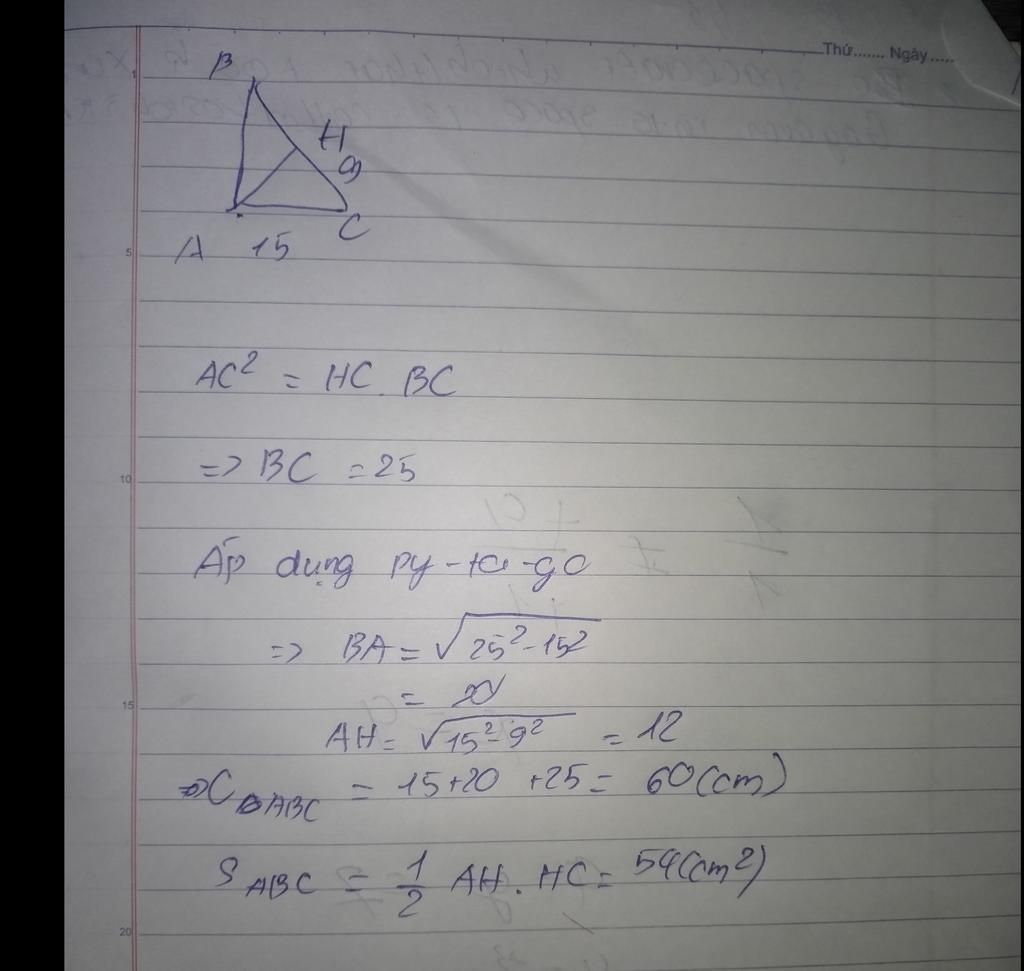 Thứ....... Ngày .....
B
H
9
A 15 C
AC² = HC . BC
=> BC = 25
Áp dụng py-ta-go
=> BA = √25² - 15²
=
AH = √15² - 9² = 12
=> C△ABC = 15 + 20 + 25 = 60 (cm)
S ABC = 1/2 AH . HC = 54 (cm²)
1
5
10
15
20